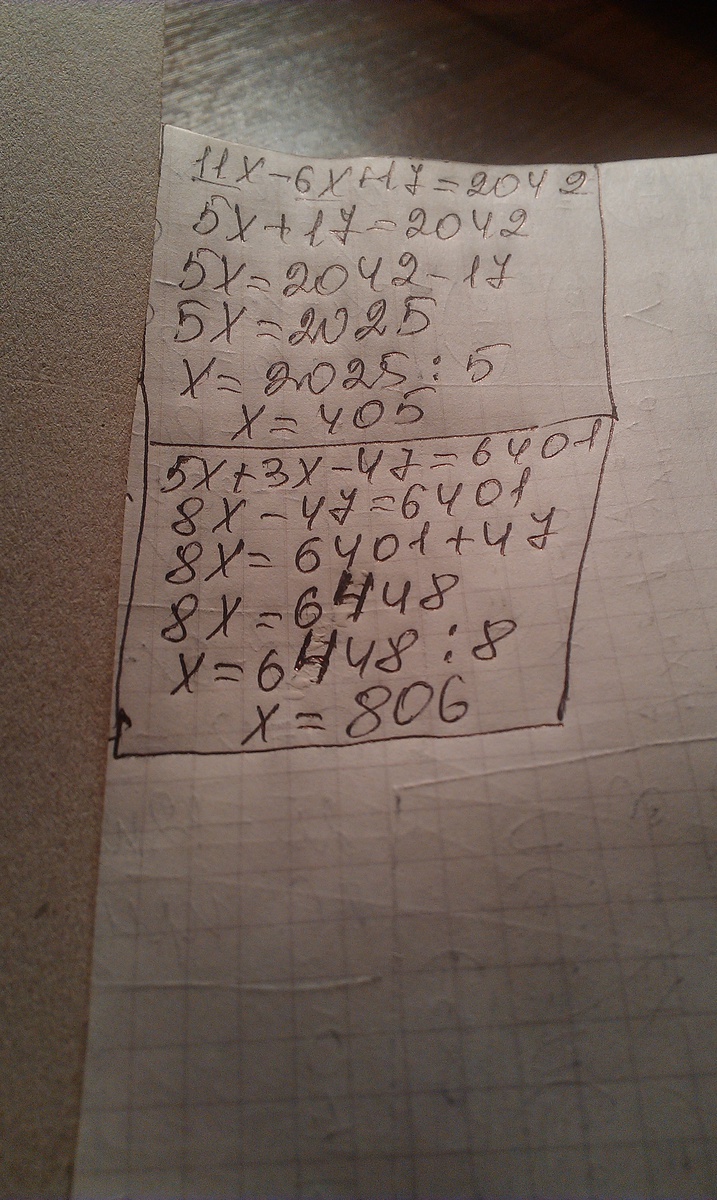 11x-6x+17=2042
5x+17=2042
5x=2042-17
5x=2025
x=2025:5
x=405
5x+3x-47=6401
8x-47=6401
8x=6401+47
8x=6448
x=6448:8
x=806